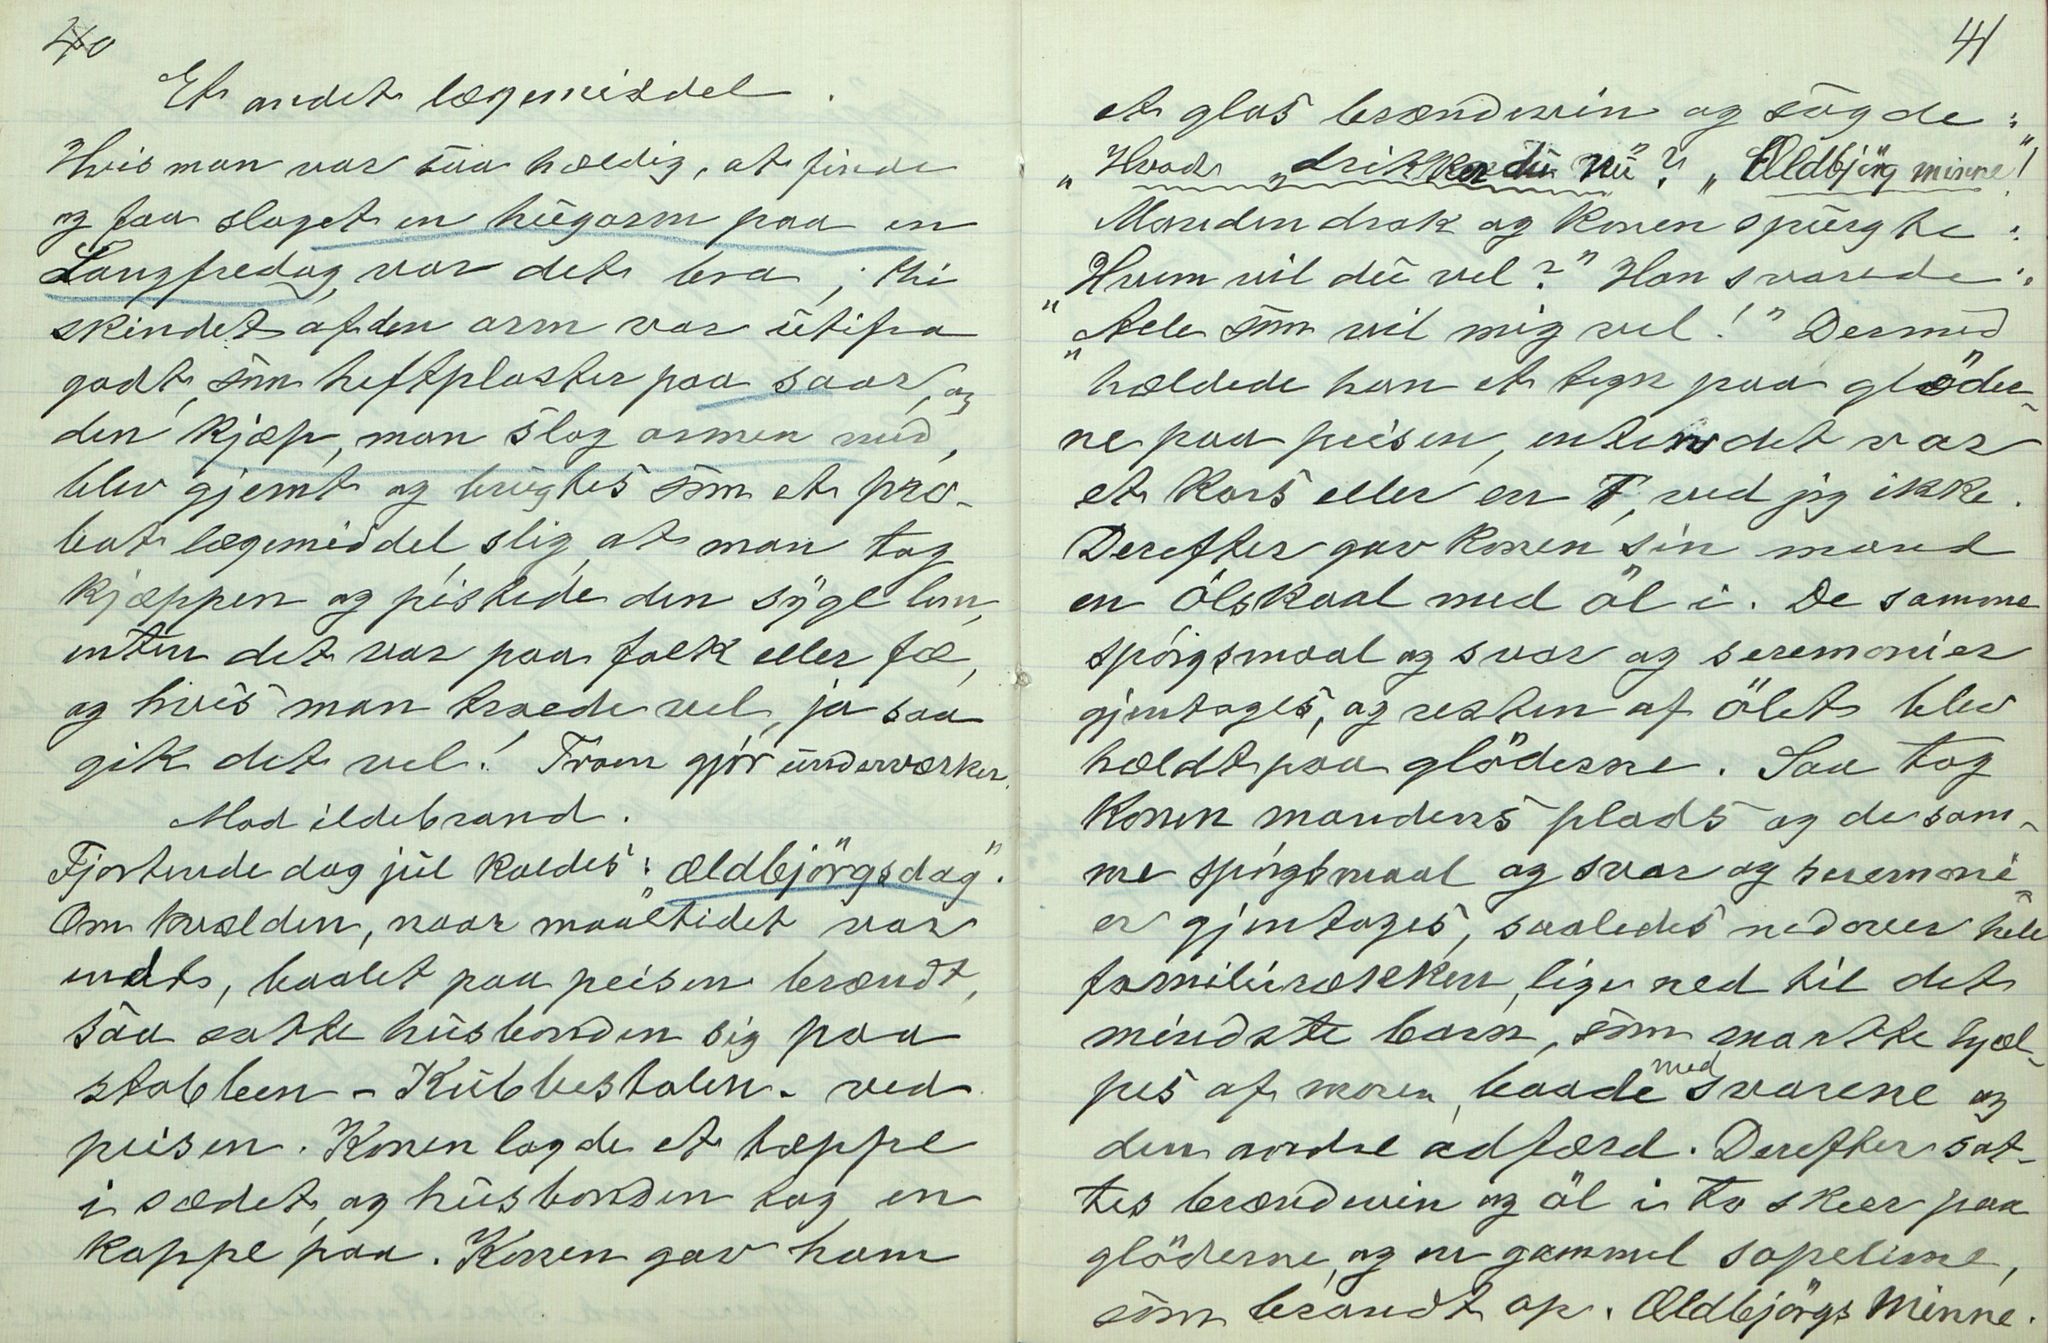 40
Et andet lægemiddel.
Hvis man var saa heldig, at finde
og faa slaget en hugorm paa en
Langfredag, var det bra, thi
skindet af den orm var utifra
godt, som heftplaster paa saar, og
den kjæp, man slog ormen med,
blev gjemt og brugtes som et pro-
bat lægemiddel, slig, at man tog
kjæppen og piskede den syge lem,
enten det var paa folk eller fæ,
og hvis man troede vel, ja saa
gik det vel! Troen gjør underværker.
Mod ildebrand.
Fjortende dag jul kaldes: "ældbjörgsdag".
Om kvælden, naar maaltidet var
endt, baalet paa peisen brændt,
saa satte husbonden sig paa
stabben - Kubbestolen - ved
peisen. Konen lagde et tæppe
i sædet, og husbonden tog en
kappe paa. Konen gav ham
41
et glas brændevin og sagde:
"Hvad "drikker du nu"? "Ældbjörg minne"!
Manden drak og konen spurgte:
"Hvem vil du vel?" Han svarede:
"Alle som vil mig vel!" Dermed
hældede han et tegn paa glöder-
ne paa peisen, enten det var
et kors eller en T, ved jeg ikke.
Derefter gav konen sin mand
en ölskaal med öl i. De samme
spörgsmaal og svar og seremonier
gjentoges, og resten af ölet blev
hældt paa glöderne. Saa tog
konen mandens plads og de sam-
me spörgsmaal og svar og seremoni-
er gjentoges, saaledes nedover hele
familierækken, lige ned til det
mindste barn, som maatte hjæl-
pes af moren, baade med svarene og
den andre adfærd. Derefter sat-
tes brændevin og öl i to skeer paa
glöderne, og en gammel sopelime,
som brandt op. Ældbjörgs Minne.